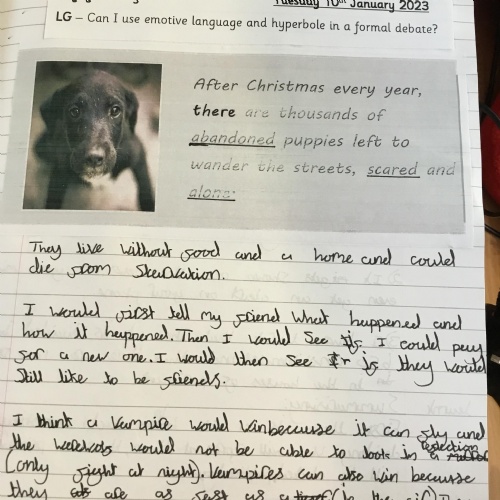 Tuesday 10th January 2023
LG – Can I use emotive language and hyperbole in a formal debate?
After Christmas every year,
there are thousands of
abandoned puppies left to
wander the streets, scared and
alone.
They live without food and a home and could
die from starvation.
I would first tell my friend what happened and
how it happened. Then I would see if I could pay
for a new one. I would then see if they would
still like to be friends.
I think a vampire would win because it can fly and
the would not be able to look in a reflection
(only fight at night). Vampires can also win because
they are as fast as a